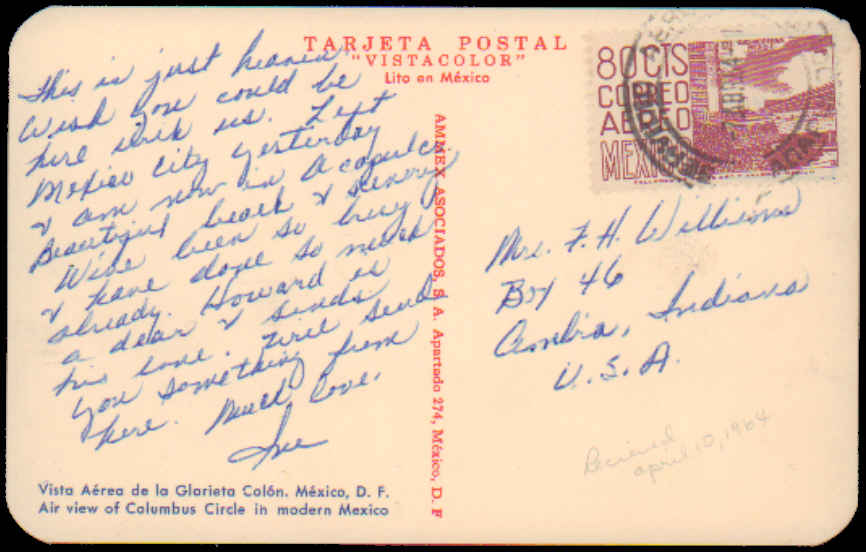 TARJETA POSTAL
"VISTACOLOR"
Lito en México
This is just heaven
Wish you could be
here with us. Left
Mexico City yesterday
& am now in Acapulco.
Beautiful beach & scenery
We've been so busy
& have done so much
already. Howard is
a dear & sends
his love. Will send
you something from
here. Much love,
Vista Aérea de la Glorieta Colón. México, D. F.
Air view of Columbus Circle in modern Mexico
AMMEX ASOCIADOS, S. A. Apartado 274, México, D. F
80 CTS
CORREO
AEREO
MEXICO
Mrs. F. H. Williams
Box 46
Ambia, Indiana
U. S. A.
Recieved
april 10, 1964